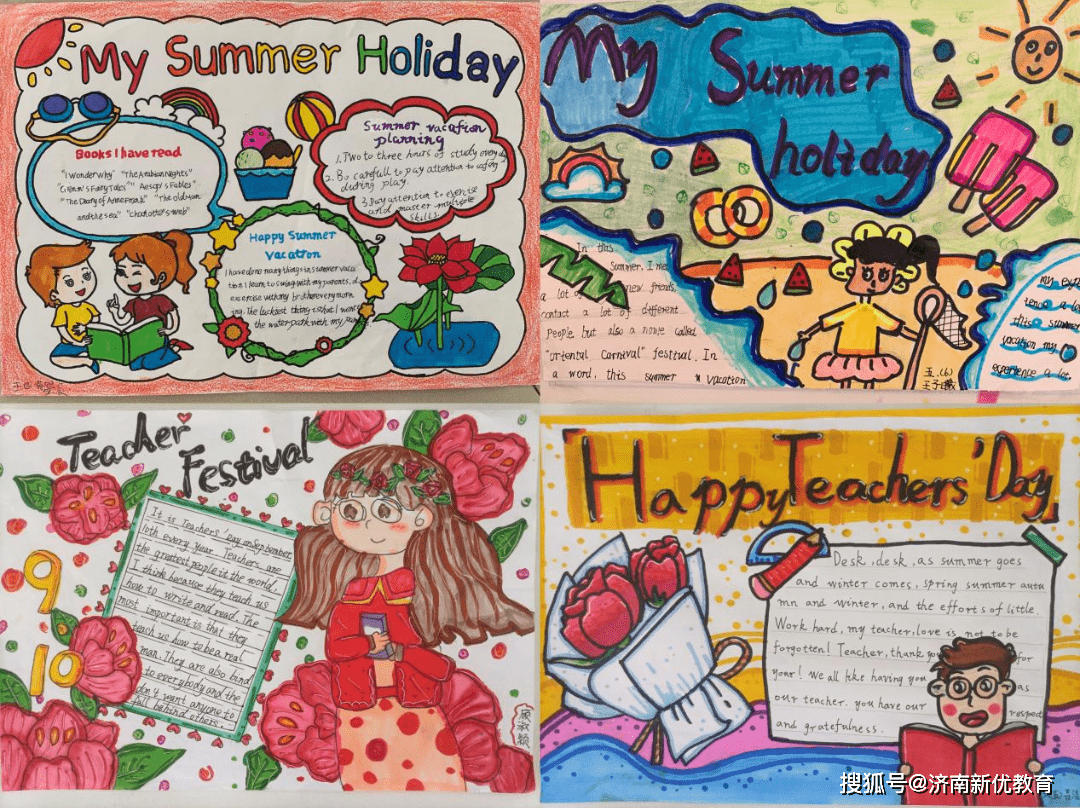 My Summer Holiday
Books I have read
"I wonder Why" "The Arabian Nights"
"Grimm's Fairy Tales" "Aesop's Fables"
"The Diary of Anne Frank" "The old man
and the sea" "Charlotte's web"
Summer vacation
planning
1. Two to three hours of study every day
2. Be carefull to pay attention to safety
during play.
3. Pay attention to exercise
and master multiple
skills.
Happy Summer
vacation
I have done many things in summer vaca
tion I learn to swing with my parents, I
exercise with my brother every morn
ing. The luckiest thing is that I went
the water park with my
My Summer
holiday
In this
summer. I met
a lot of new friends,
contact a lot of different
People but also a nome called
"oriental Carnival" festival. In
a word, this summer vacation
my exper
tence a lot
this summer
vacation my
experience a lot.
五.(6)
王子
Teacher
Festival
9
10
It is Teachers' Day on September
10th every year. Teachers are
the greatest people it the world,
I think because they teach us
how to write and read. The
most important is that they
teach us how to be a real
man. They are also kind
to everybody and the
don't want anyone to
fall behind others.
Happy Teachers' Day
Desk, desk, as summer goes
and winter comes, spring summer autu
mn and winter, and the efforts of little.
Work hard, my teacher, love is not to be
forgotten! Teacher, thank you for
your! We all like having you as
our teacher. you have our respect
and gratefulness.
搜狐号@济南新优教育